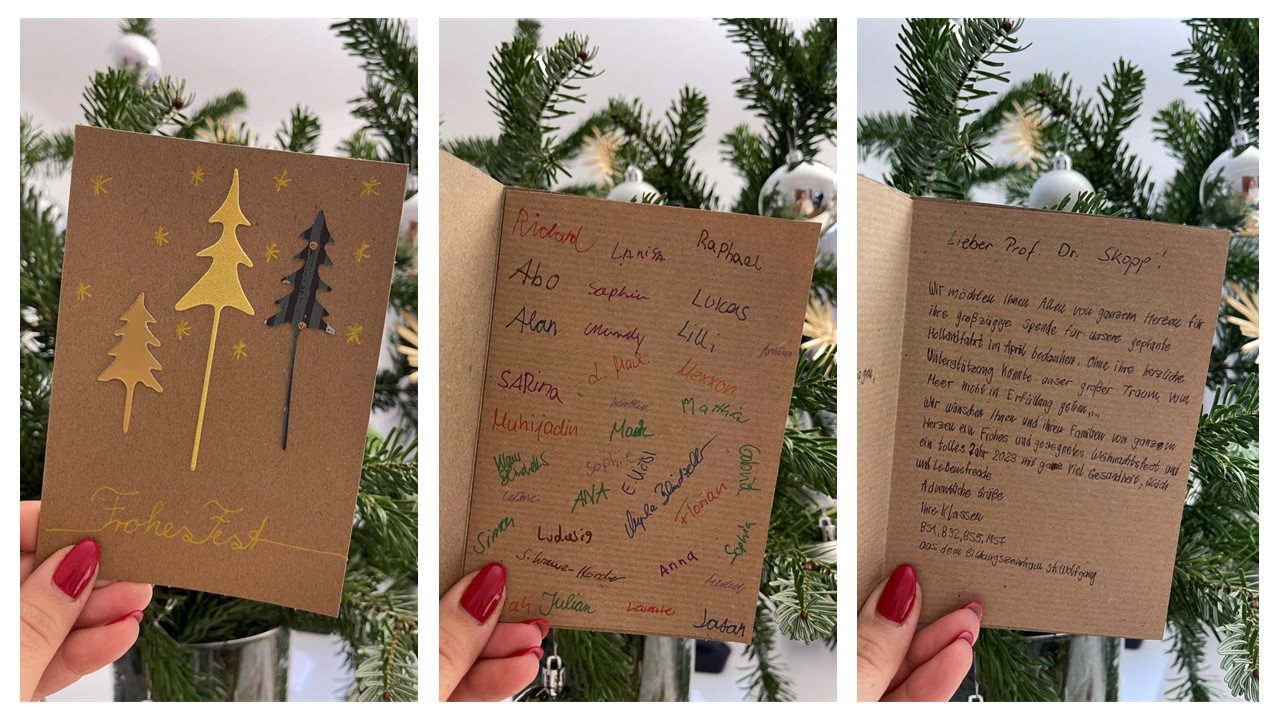 Frohes Fest
Richard
Laniya
Raphael
Abo
Sophia
Lukas
Alan
Mandy
Lilli
SARina
Muhijadin
Mark
Sophie
ANA
Gabriel
Florian
Simon
Ludwig
Anna
Sophia
Julian
Jasan
Lieber Prof. Dr. Skopp!
Wir möchten Ihnen Allen von ganzem Herzen für
ihre großzügige Spende für unsere geplante
Hollandfahrt im April bedanken. Ohne ihre herzliche
Unterstützung könnte unser großer Traum vom
Meer nicht in Erfüllung gehen...
Wir wünschen Ihnen und ihren Familien von ganzem
Herzen ein Frohes und gesegnetes Weihnachtsfest und
ein tolles Jahr 2023 mit ganz viel Gesundheit, Glück
und Lebensfreude
Adventliche Grüße
Ihre Klassen
BS1, BS2, BS5, MS7
Aus dem Bildungszentrum St. Wolfgang